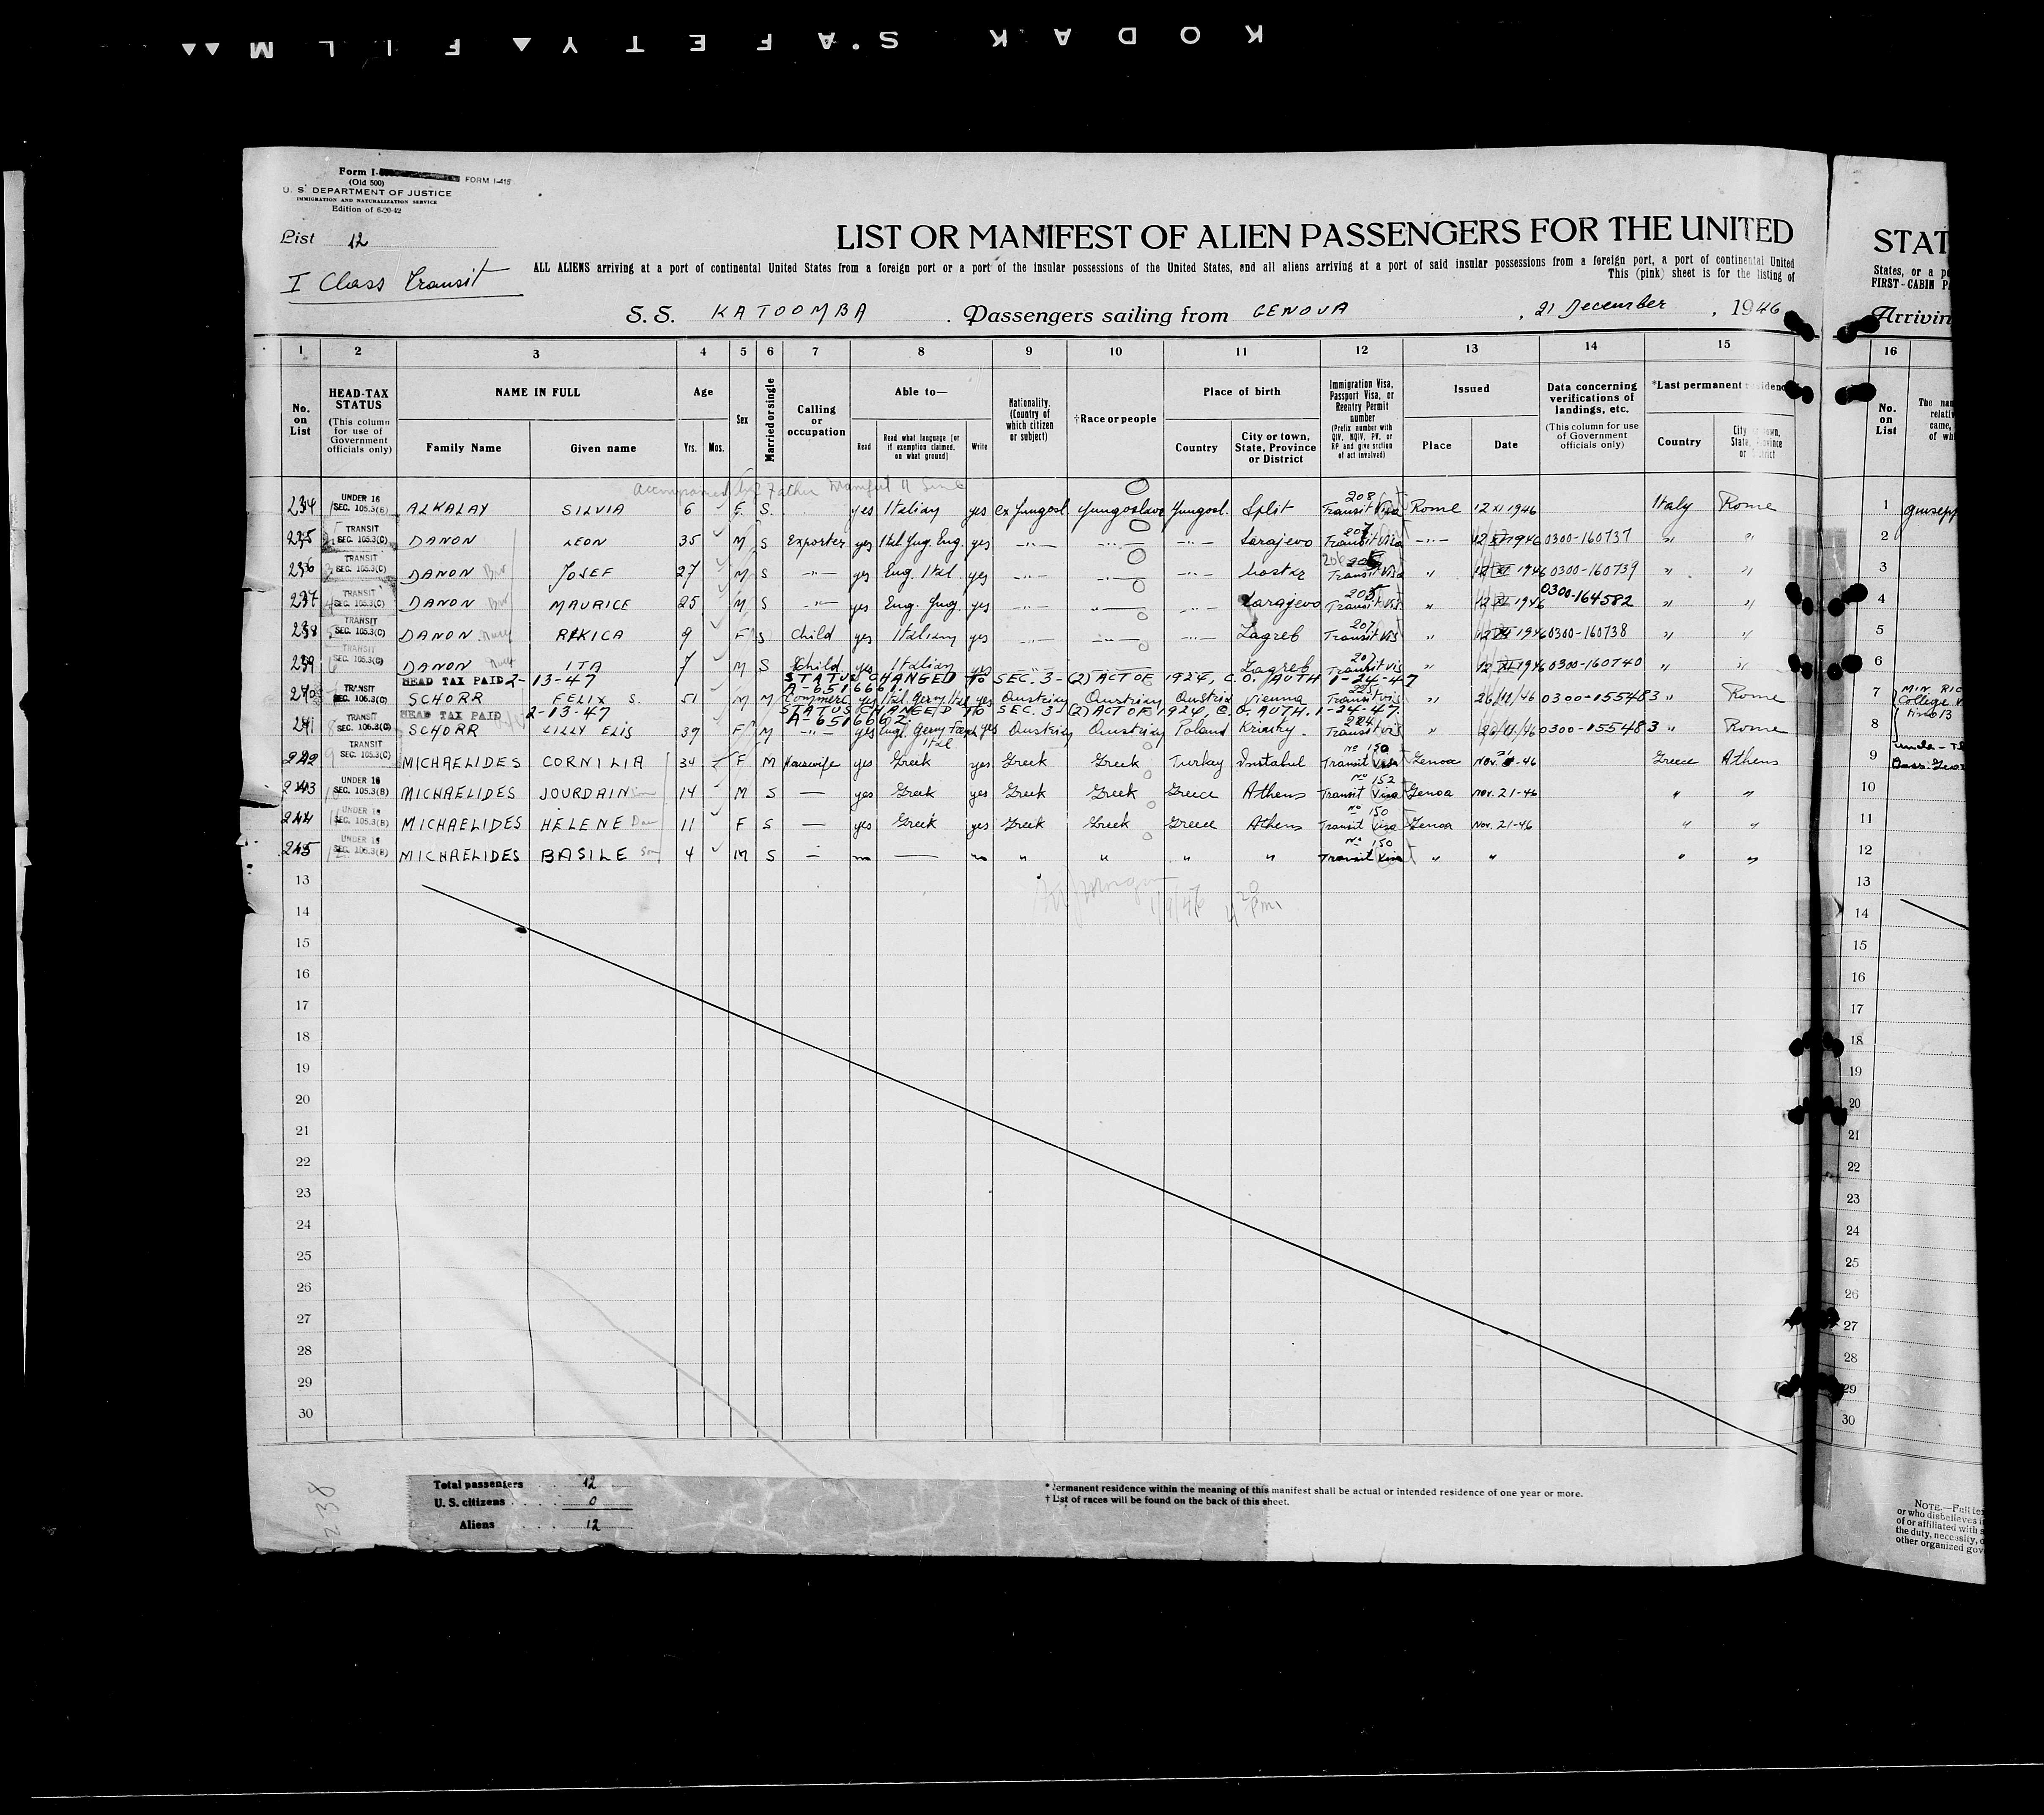 KODAK SAFETY FILM
Form I- FORM I-415
(Old 500)
U. S. DEPARTMENT OF JUSTICE
IMMIGRATION AND NATURALIZATION SERVICE
Edition of 6-20-42
List 12
I Class Transit
LIST OR MANIFEST OF ALIEN PASSENGERS FOR THE UNITED
ALL ALIENS arriving at a port of continental United States from a foreign port or a port of the insular possessions of the United States, and all aliens arriving at a port of said insular possessions from a foreign port, a port of continental United
This (pink) sheet is for the listing of
S. S. KATOOMBA . Passengers sailing from GENOVA , 21 December , 1946
1 2 3 4 5 6 7 8 9 10 11 12 13 14 15
No. on List
HEAD-TAX STATUS
(This column for use of Government officials only)
NAME IN FULL
Family Name Given name
Age
Yrs. Mos.
Sex
Married or single
Calling or occupation
Able to—
Read Read what language (or if exemption claimed, on what ground) Write
Nationality. (Country of which citizen or subject)
†Race or people
Place of birth
Country City or town, State, Province or District
Immigration Visa, Passport Visa, or Reentry Permit number
(Prefix number with QIV, NQIV, PV, or RP and give section of act involved)
Issued
Place Date
Data concerning verifications of landings, etc.
(This column for use of Government officials only)
*Last permanent residence
Country City or town, State, Province or District
accompanied by Father Manifest 11 Line
234 UNDER 16 SEC. 105.3(B) ALKALAY SILVIA 6 F. S. yes Italian yes ex Jungosl. Yungoslavo Yungosl. Split 208 Transit Visa Rome 12 XI 1946 Italy Rome
235 TRANSIT SEC. 105.3(C) DANON LEON 35 M S Exporter yes Ital. Jug. Eng. yes —"— —"— —"— Sarajevo 207 Transit Visa —"— 12 XI 1946 0300-160737 " "
236 TRANSIT SEC. 105.3(C) DANON Bro JOSEF 27 M S —"— yes Eng. Ital. yes —"— —"— —"— Mostar 206 Transit Visa " 12 XI 1946 0300-160739 " "
237 TRANSIT SEC. 105.3(C) DANON Bro MAURICE 25 M S —"— yes Eng. Jug. yes —"— —"— —"— Sarajevo 205 Transit Vis " 12 XI 1946 0300-164582 " "
238 TRANSIT SEC. 105.3(C) DANON RIKICA 9 F S Child yes Italian yes —"— —"— —"— Zagreb 207 Transit Vis " 12 XI 1946 0300-160738 " "
239 TRANSIT SEC. 105.3(C) DANON ITA 7 M S Child yes Italian yes —"— —"— Zagreb 207 Transit vis " 12 XI 1946 0300-160740 " "
HEAD TAX PAID 2-13-47 STATUS CHANGED TO SEC. 3-(2) ACT OF 1924, C.O. AUTH 1-24-47
A-6516661.
240 TRANSIT SEC. 105.3(C) SCHORR FELIX S. 51 M M Commerc yes Ital. Germ yes Austrian Austrian Austria Vienna 225 Transit vis " 26/11/46 0300-155483 " Rome
HEAD TAX PAID 2-13-47 STATUS CHANGED TO SEC. 3-(2) ACT OF 1924, C.O. AUTH. 1-24-47
A-6516662.
241 TRANSIT SEC. 105.3(C) SCHORR LILLY ELIS 39 F M —"— yes Engl. Germ Ital yes Austrian Austrian Poland 224 Transit vis " 26/11/46 0300-155483 " Rome
242 TRANSIT SEC. 105.3(C) MICHAELIDES CORNILIA 34 F M Housewife yes Greek yes Greek Greek Turkey Instabul No 150 Transit Visa Genoa Nov. 21-46 Greece Athens
243 UNDER 16 SEC. 105.3(B) MICHAELIDES JOURDAIN 14 M S — yes Greek yes Greek Greek Greece Athens No 152 Transit Visa Genoa Nov. 21-46 " "
244 UNDER 16 SEC. 105.3(B) MICHAELIDES HELENE Dau 11 F S — yes Greek yes Greek Greek Greece Athens No 150 Transit Visa Genoa Nov. 21-46 " "
245 UNDER 16 SEC. 105.3(B) MICHAELIDES BASILE Son 4 M S — no — no " " " " No 150 Transit Visa " " " "
13
14
15
16
17
18
19
20
21
22
23
24
25
26
27
28
29
30
Total passengers 12
U. S. citizens 0
Aliens 12
* Permanent residence within the meaning of this manifest shall be actual or intended residence of one year or more.
† List of races will be found on the back of this sheet.
238
STAT
States, or a po
FIRST-CABIN PA
Arrivin
16
No. on List
The nam
relativ
came,
of wh
1 Giusepp
2
3
4
5
6
7 MIN. RIC
College V
8
9
10
11
12
13
14
15
16
17
18
19
20
21
22
23
24
25
26
27
28
29
30
NOTE.—Full te
or who disbelieves i
of or affiliated with a
the duty, necessity, o
other organized gov